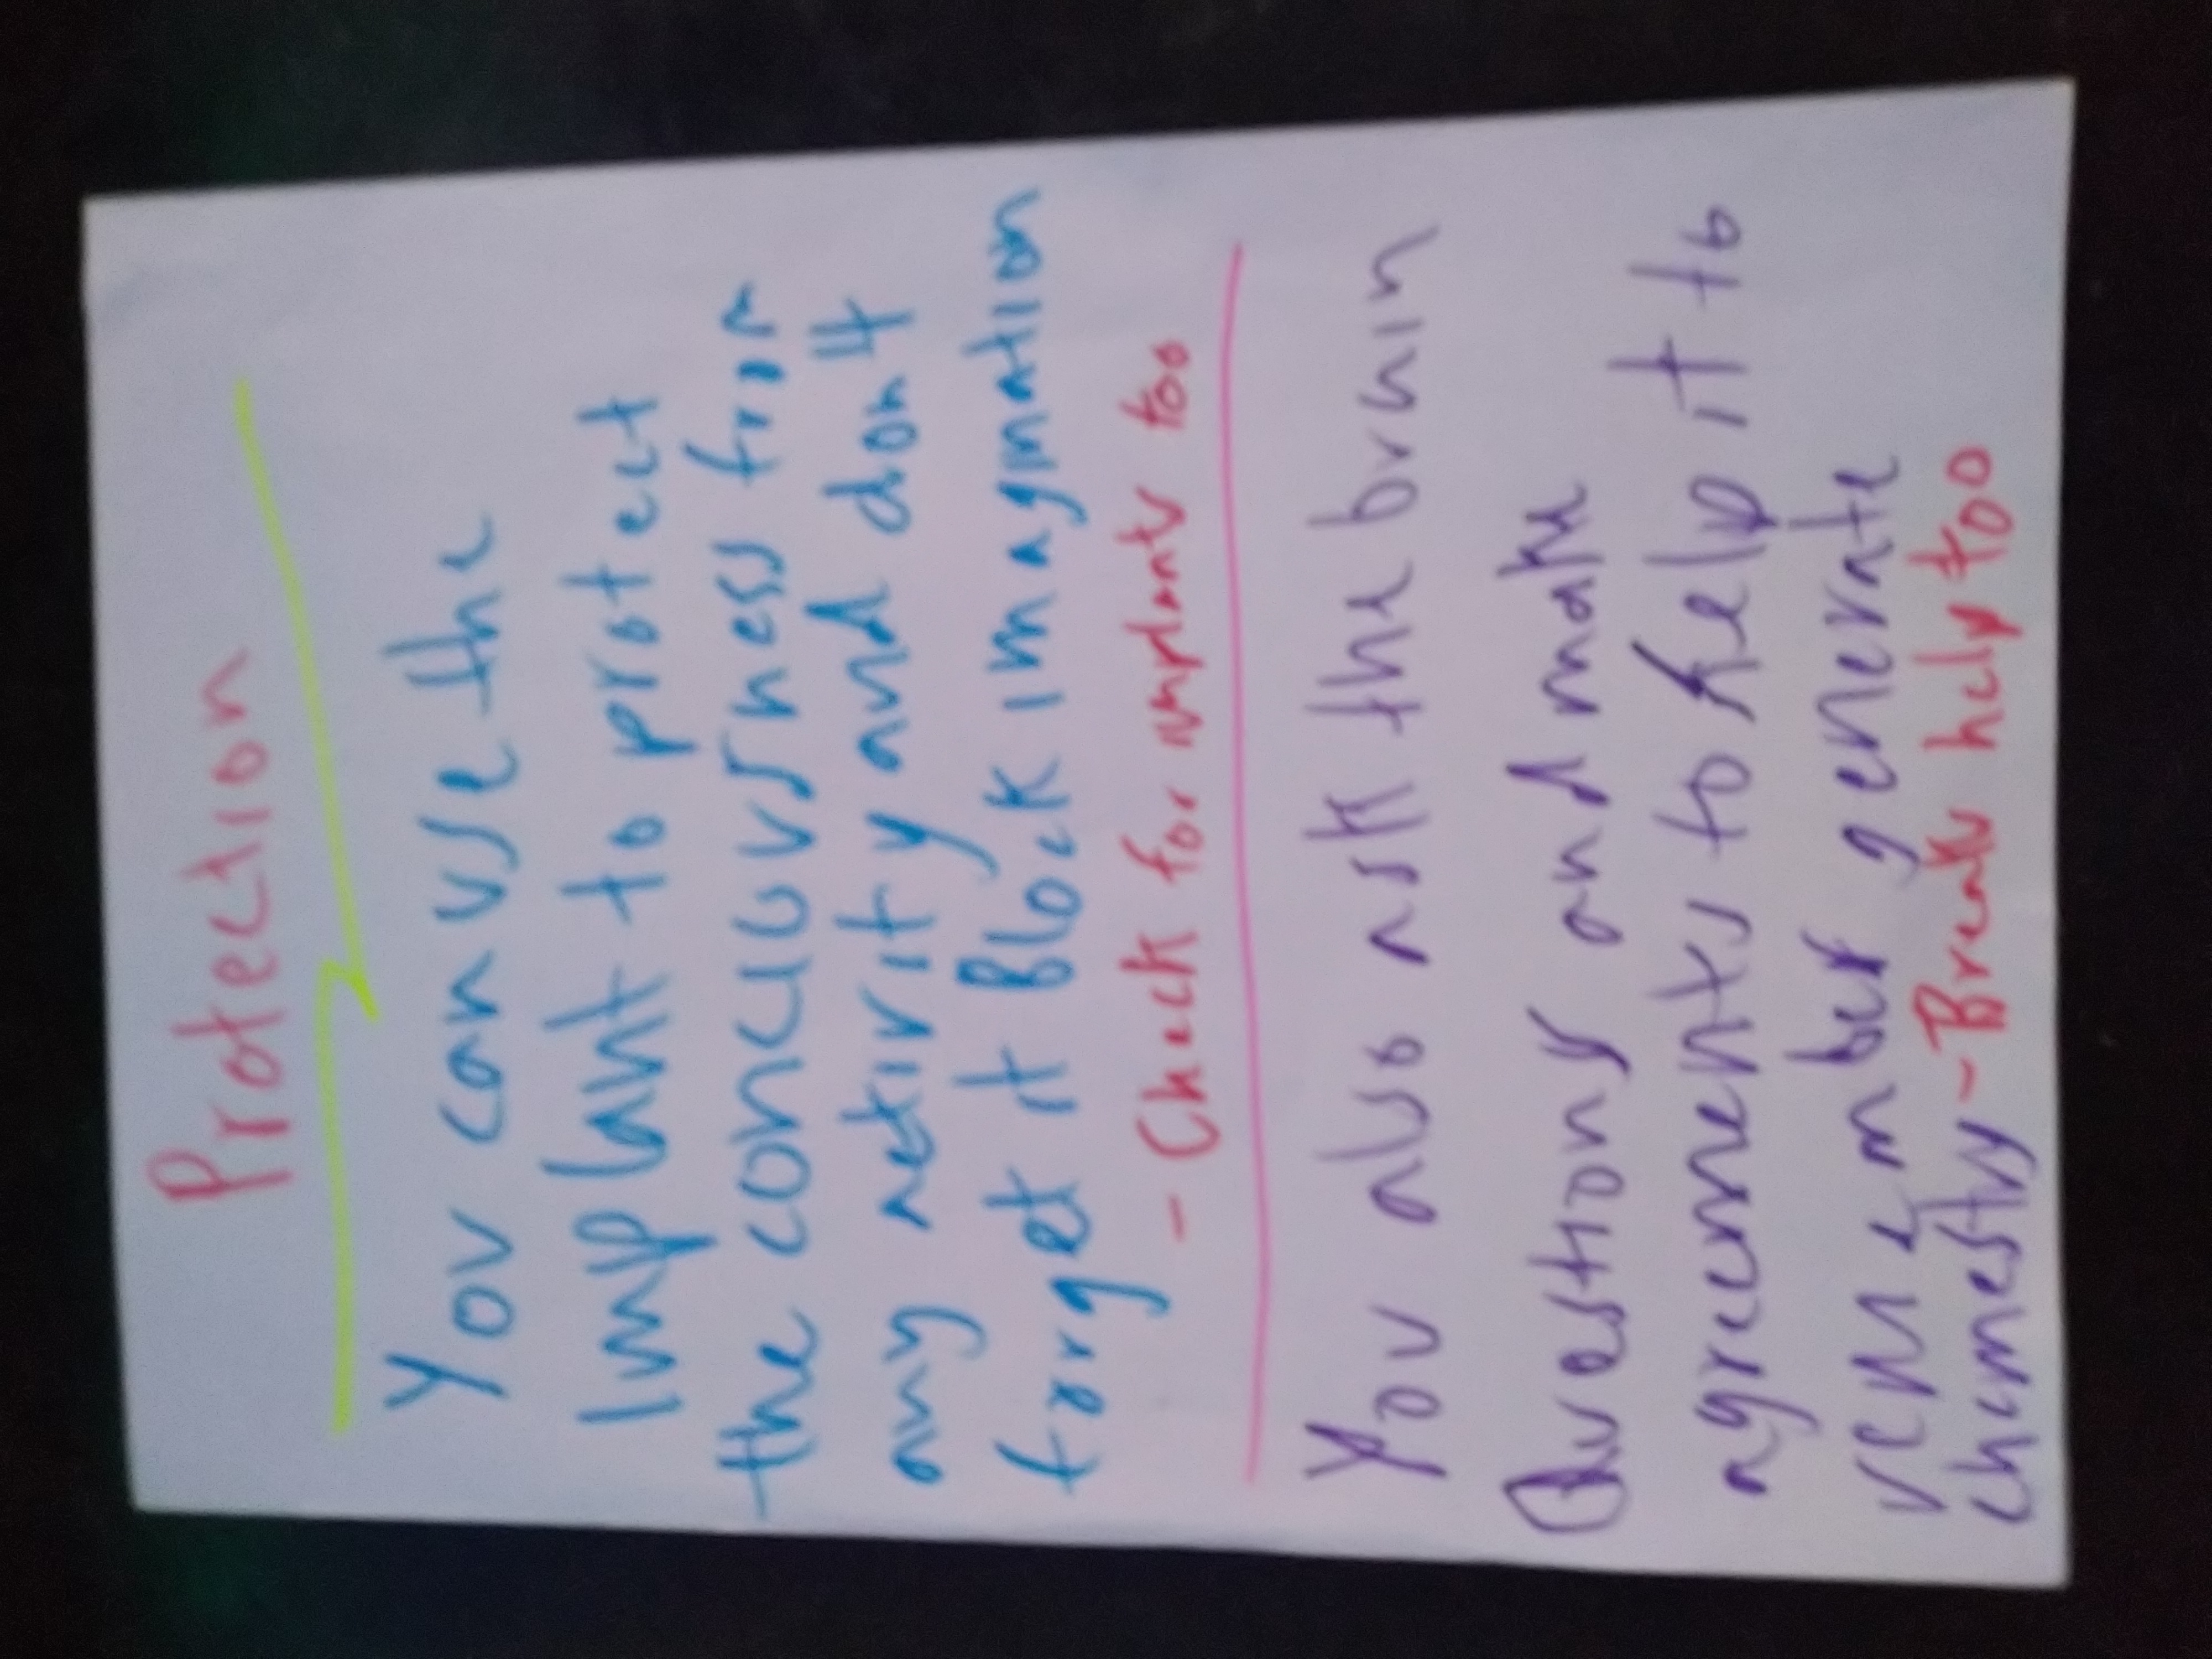 Protection
You can use the
implant to protect
the conciousness from
any activity and don't
forget it Block imagination
- Check for implants too
You also ask the brain
Questions and make
agreements to help it to
remember generate
chemistry - Break help too